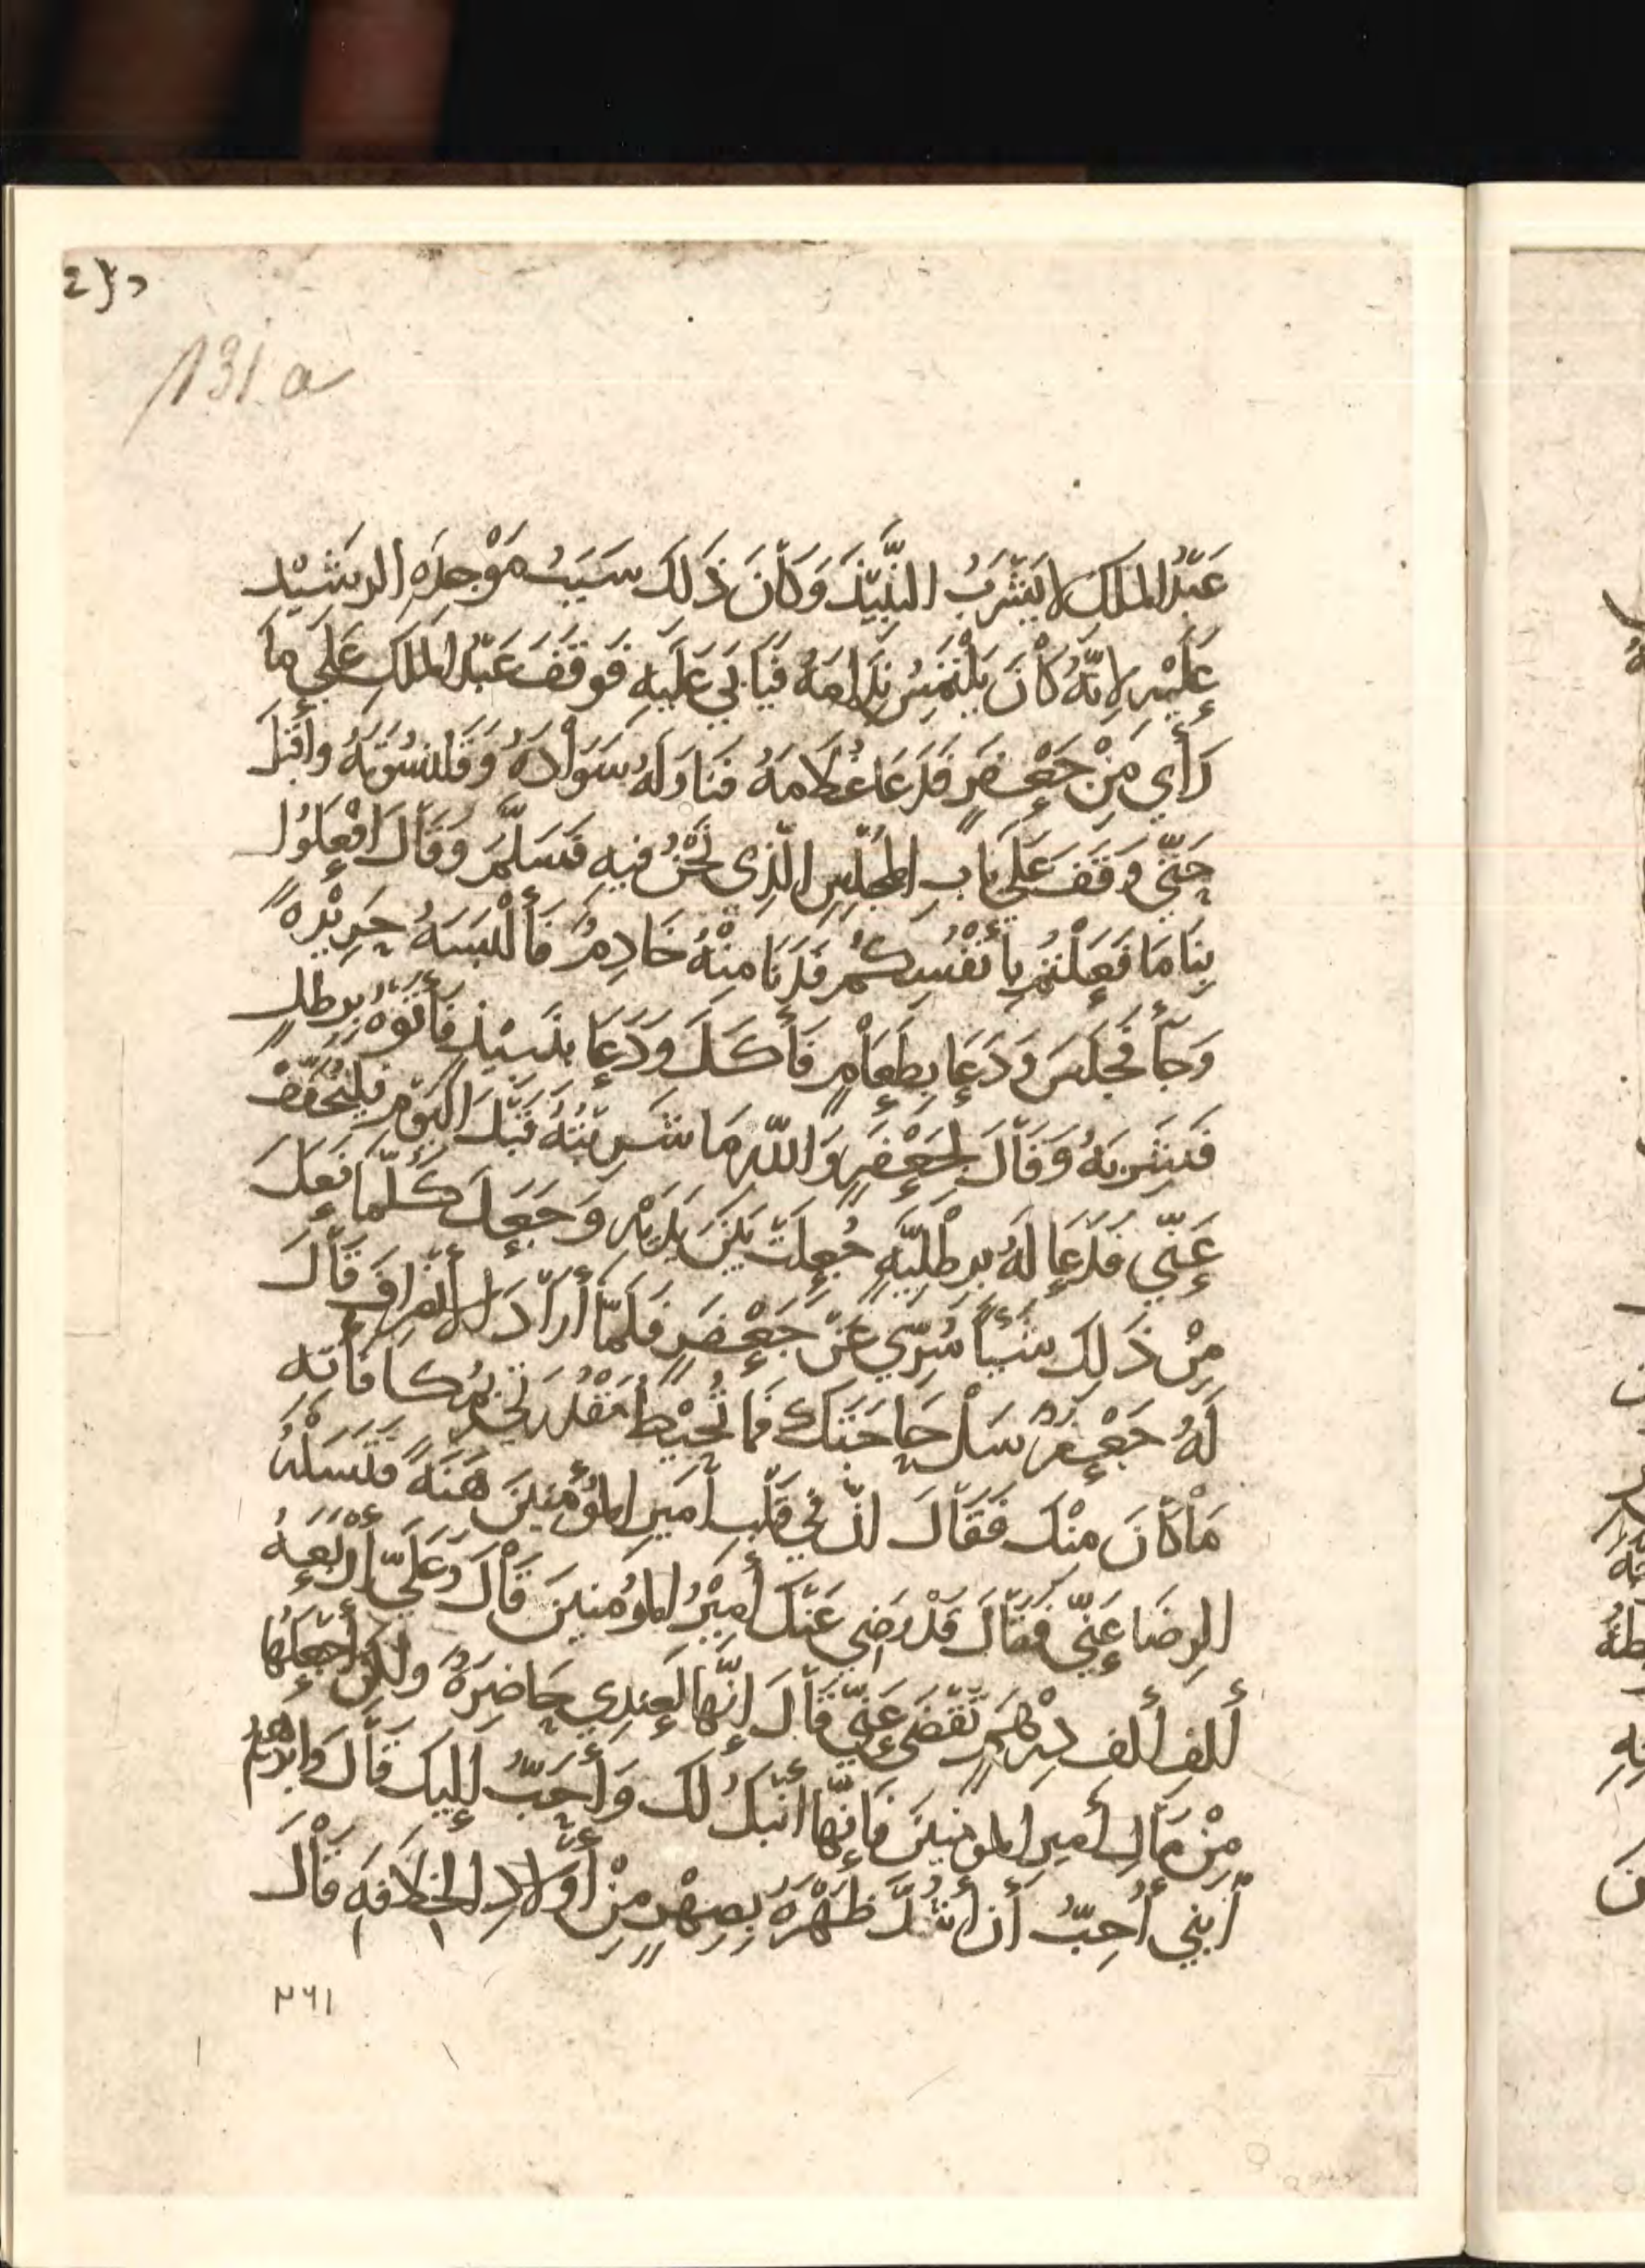 131 a
عَبْدُ الْمَلِكِ لاَ يَشْرَبُ النَّبِيْذَ وَكَاْنَ ذَلِكَ سَبَبُ مَوْجِدَةِ الرَشَيْدِ
عَلَيْهِ لِاَنَّهُ كَاْنَ يَلْتَمِسُ نِدَامَهُ فَيَأبَي عَلَيهِ فَوَقَفَ عَبْدُ الْمَلَكِ عَلَي مَا
رَأَي مِنْ جَعْفَرٍ فَدَعَا غُلَامَهُ فَنَاوَلَهُ سَوَاْدَهُ وَقَلَنسُوَتَهُ وَأَقْبَلَ
حَتَّي وَقَفَ عَلَي بَابِ الْمَجْلِسِ الَّذِي نَحْنُ فِيهِ فَسَلَّمَ وَقَاْلَ افْعَلُوا
بِنَا مَا فَعَلْتُمْ بِأَنْفُسِكُمْ فَدَنَا مِنْهُ خَادِمٌ فَأَلْبَسَهُ حَرِيْرَةً
وَجَآءَ فَجَلَسَ وَدَعَا بِطَعَاْمٍ فَأَكَلَ وَدَعَا بِنَبِيْذٍ فَأَتَوْهُ بِرِطْلٍ
فَشَرِبَهُ وَقَاْلَ لِجَعْفَرٍ وَاللّهِ مَا شَرِبْتُهُ قَبْلَ الْيَوْمِ فَلْيُخَفَّفْ
عَنّي فَدَعَا لَهُ بِرِطْلِيَّةٍ جُعِلَتْ بَيْنَ يَدَيْهِ وَجَعَلَ كُلَّمَا فَعَلَ
مِنْ ذَلِكَ شَيْئًا سُرِّيَ عَنْ جَعْفَرٍ فَلَمَّا أَرَادَ الْأِنْصِرَافَ قَاْلَ
لَهُ جَعْفَرٌ سَلْ حَاجَتَكَ فَمَا تُحِيْطُ مَقْدُرَتِي بِمُكَافَأتِهِ
مَاْ كَاْنَ مِنْكَ فَقَاْلَ انَّ فِي قَلْبِ أَمِيرِ الْمُؤْمِنِينَ هَنَةً فَتَسَلْهُ
الرِضَا عَنِّي فَقَاْلَ قَدْ رَضِيَ عَنْكَ أَمِيْرُ الْمُومِنينَ قَاْلَ وَعَلَيَّ أَرْبَعَةُ
أَلفِ أَلفِ دِرْهَمٍ تُقْضَى عَنِّي قَاْلَ إِنَّهَا لَعِنْدِي حَاضِرَةٌ وَلَكِنْ أَجْعَلُهَا
مِنْ مَالِ أَمِيرِ الْمُومِنِينَ فَإِنَّهَا أَنْبَلُ لَكَ وَأَحَبُّ إِلَيْكَ قَاْلَ وَابْرَهِيمُ
أبْنِي أُحِبُّ أن أَشُدَّ ظَهْرَهُ بِصِهْرٍ مِنْ أَوْلَادِ الْخِلَافَةِ قَاْلَ
٢٦١